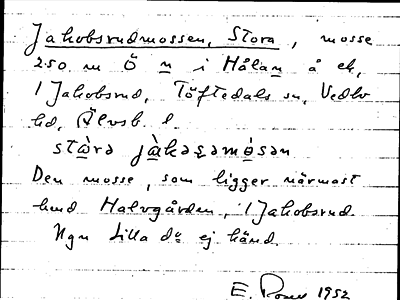 Jakobsrudmossen, Stora, mosse
250 m Ö n i Hålan å ek,
1 Jakobsrud, Töftedals sn, Vedbo
hd, Älvsb. l.
stɷ̀rə jàkəsəmɷ̀sən
Den mosse, som ligger närmast
hmd Halvgården, 1 Jakobsrud.
Ngn Lilla do ej känd.
E. 1952